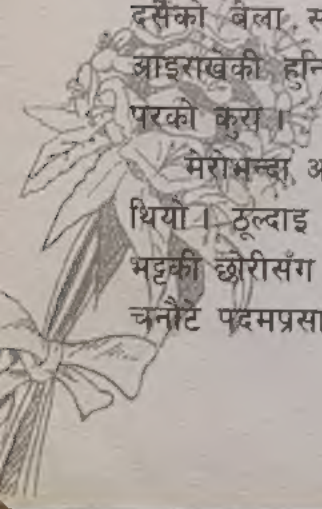 दसैंको बेला
आइराखेकी
परको कुरा ।
मेरोभन्दा
थियो । ठूल्दाइ
भट्टकी छोरीसँग
चनौटे पदमप्रसा